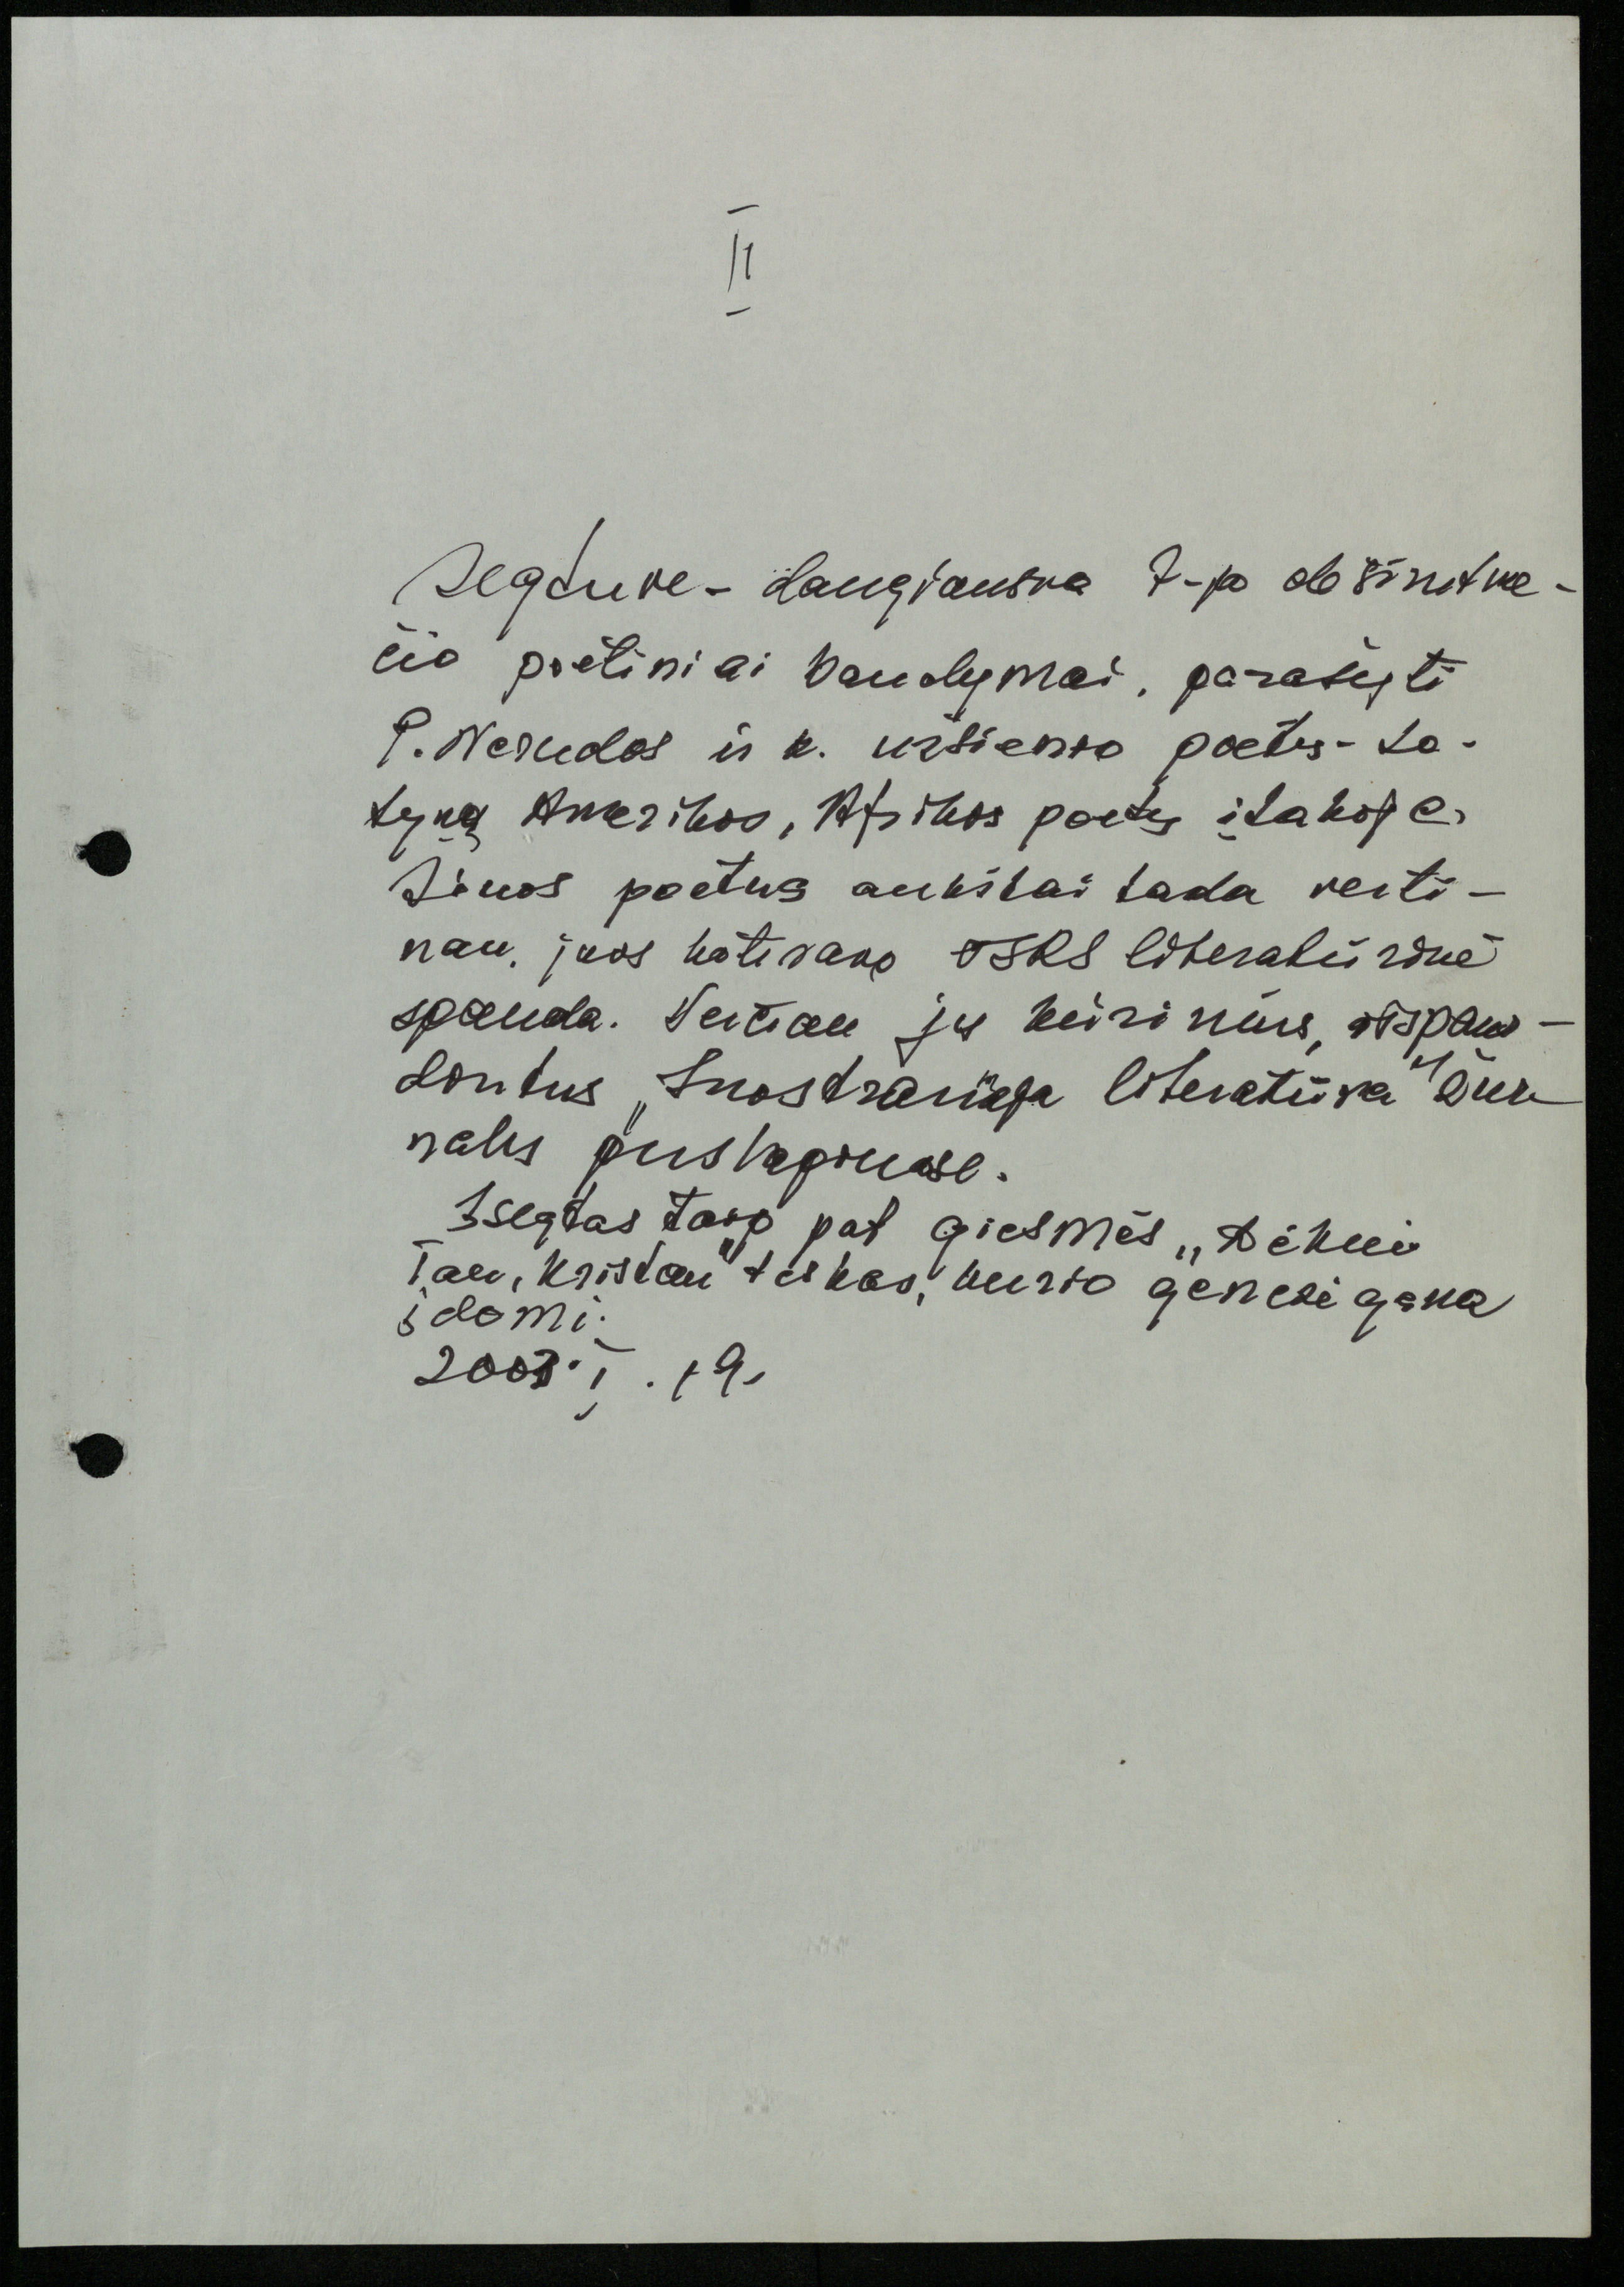 II
Segtuve - daugiausia 7-jo dešimtme-
čio poetiniai bandymai, parašyti
P. Nerudos ir k. užsienio poetų - Lo-
tynų Amerikos, Afrikos poetų įtakoje.
Šiuos poetus aukštai tada verti-
nau, juos kotiravo TSRS literatūrinė
spauda. Verčiau jų kūrinius, išspaus-
dintus „Inostrannaja literatura" žur-
nalų puslapiuose.
Įsegtas taip pat giesmės „Dėkui
Tau, Kristau" tekstas, kurio genezė gana
įdomi.
2003.I.19.